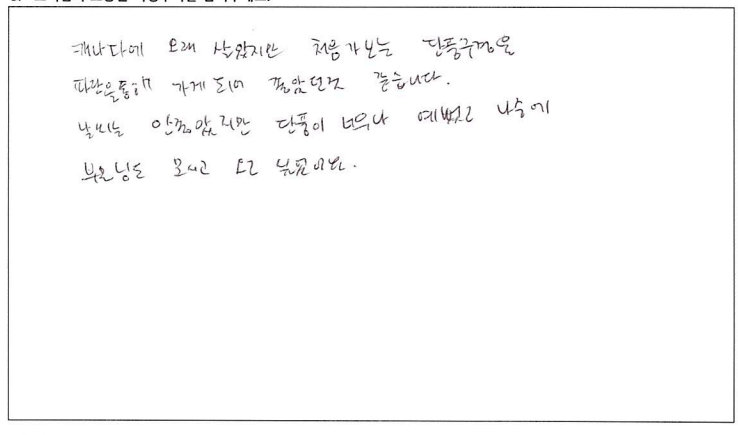 캐나다에 오래 살았지만 처음가보는 단풍구경을
파란을통해 가게 되어 좋았던것 같습니다.
날씨는 안좋았지만 단풍이 너무나 예뻤고 나중에
부모님도 모시고 오고 싶네요.